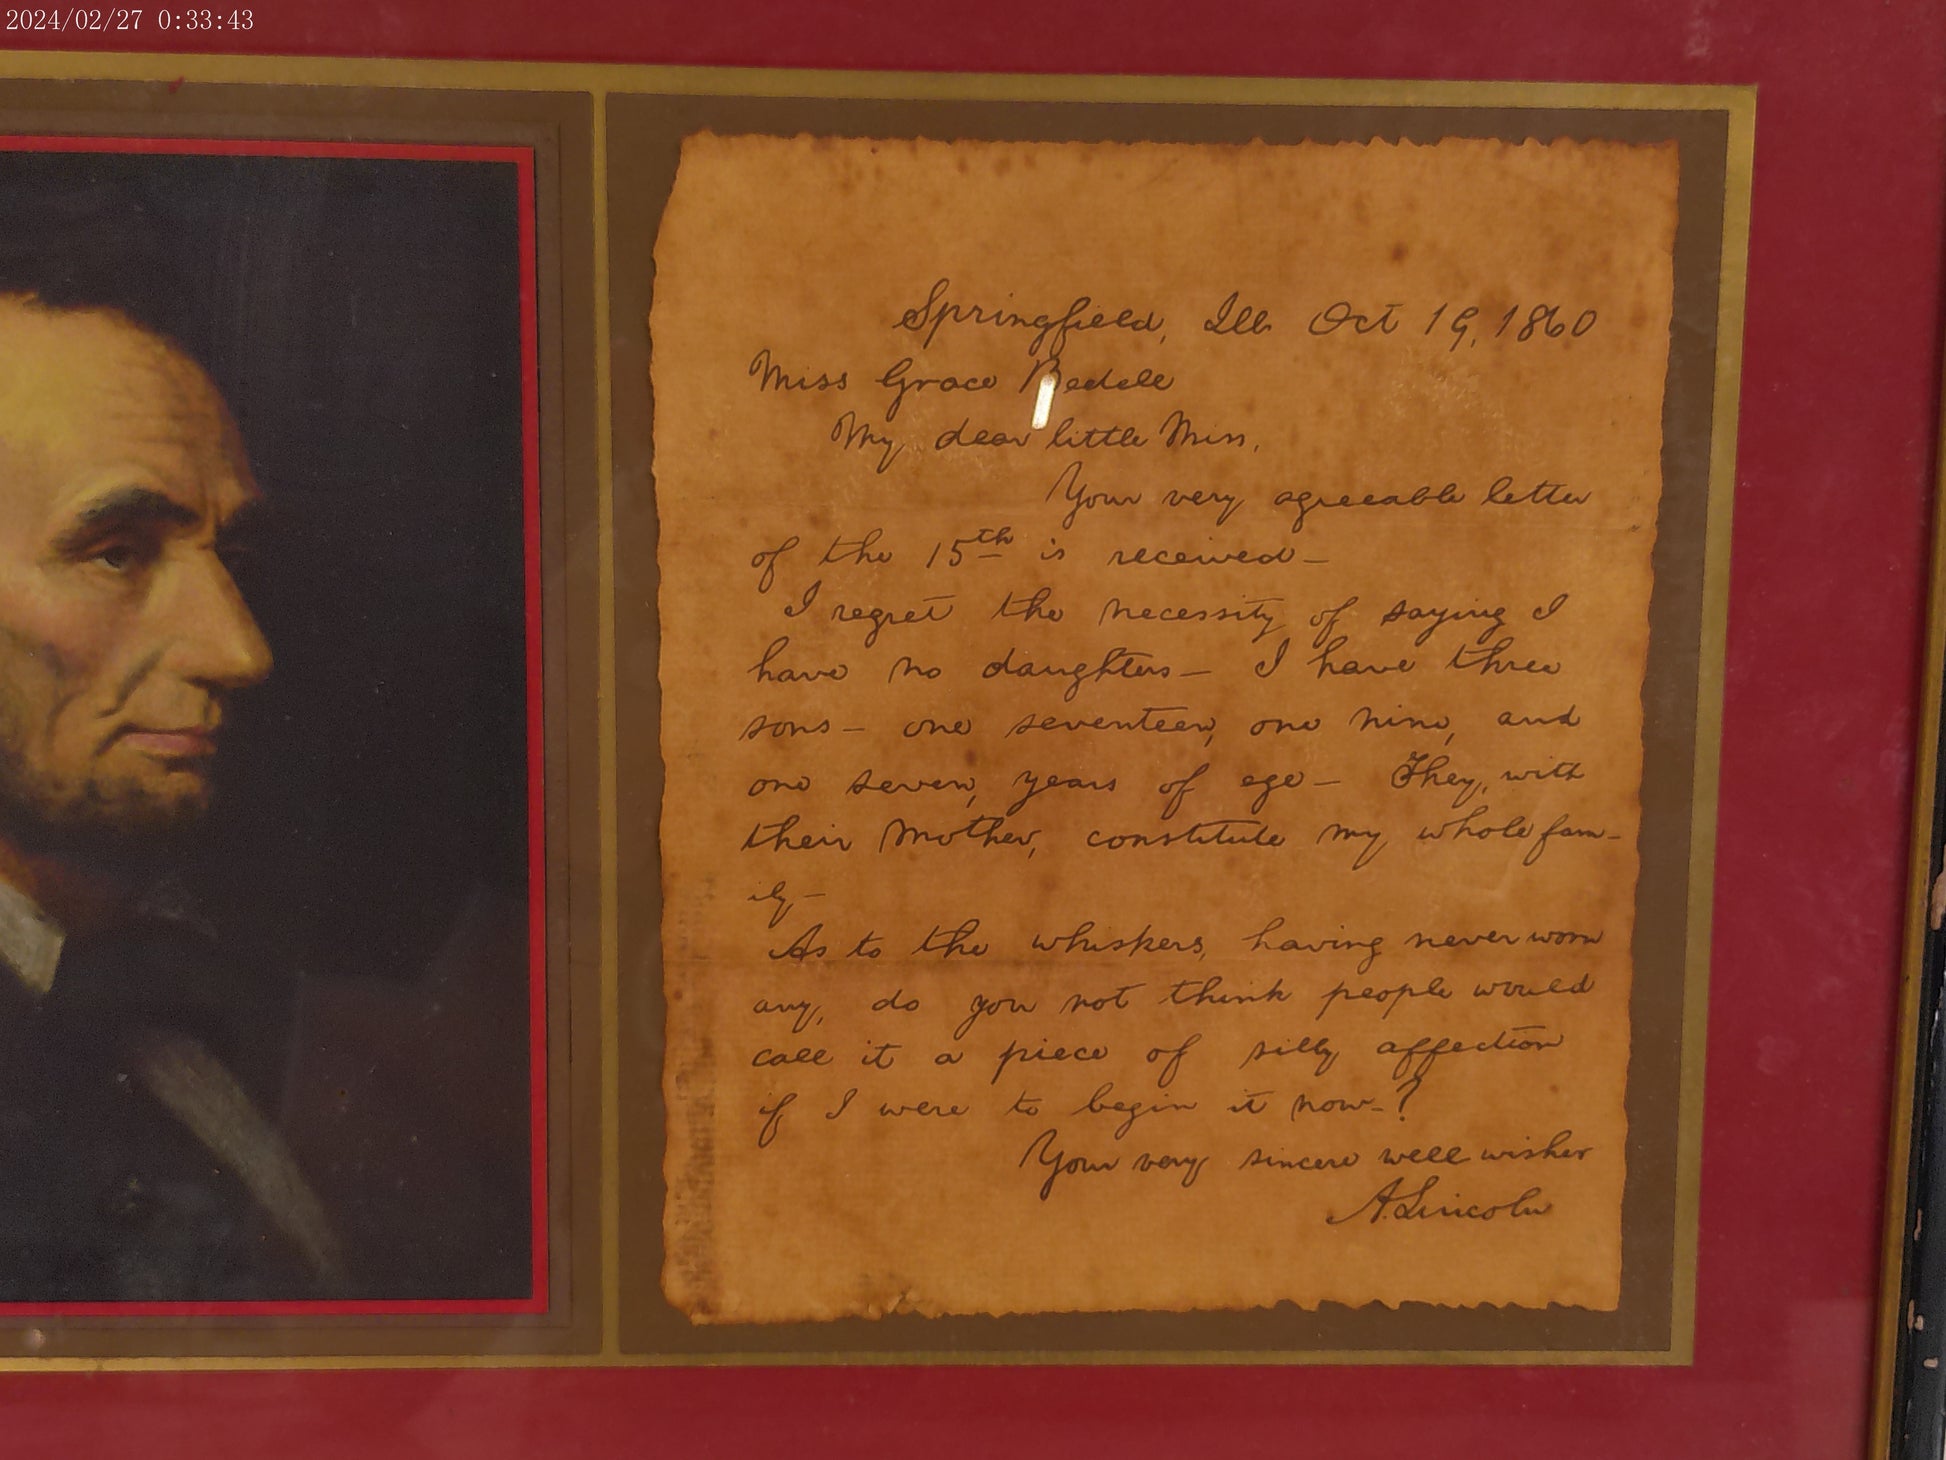 2024/02/27 0:33:43
Springfield, Ill. Oct 19, 1860
Miss Grace Bedell
My dear little Miss,
Your very agreeable letter
of the 15th is received—
I regret the necessity of saying I
have no daughters— I have three
sons— one seventeen, one nine, and
one seven, years of age— They, with
their Mother, constitute my whole fam-
ily—
As to the whiskers, having never worn
any, do you not think people would
call it a piece of silly affection
if I were to begin it now-?
Your very sincere well wisher
A. Lincoln